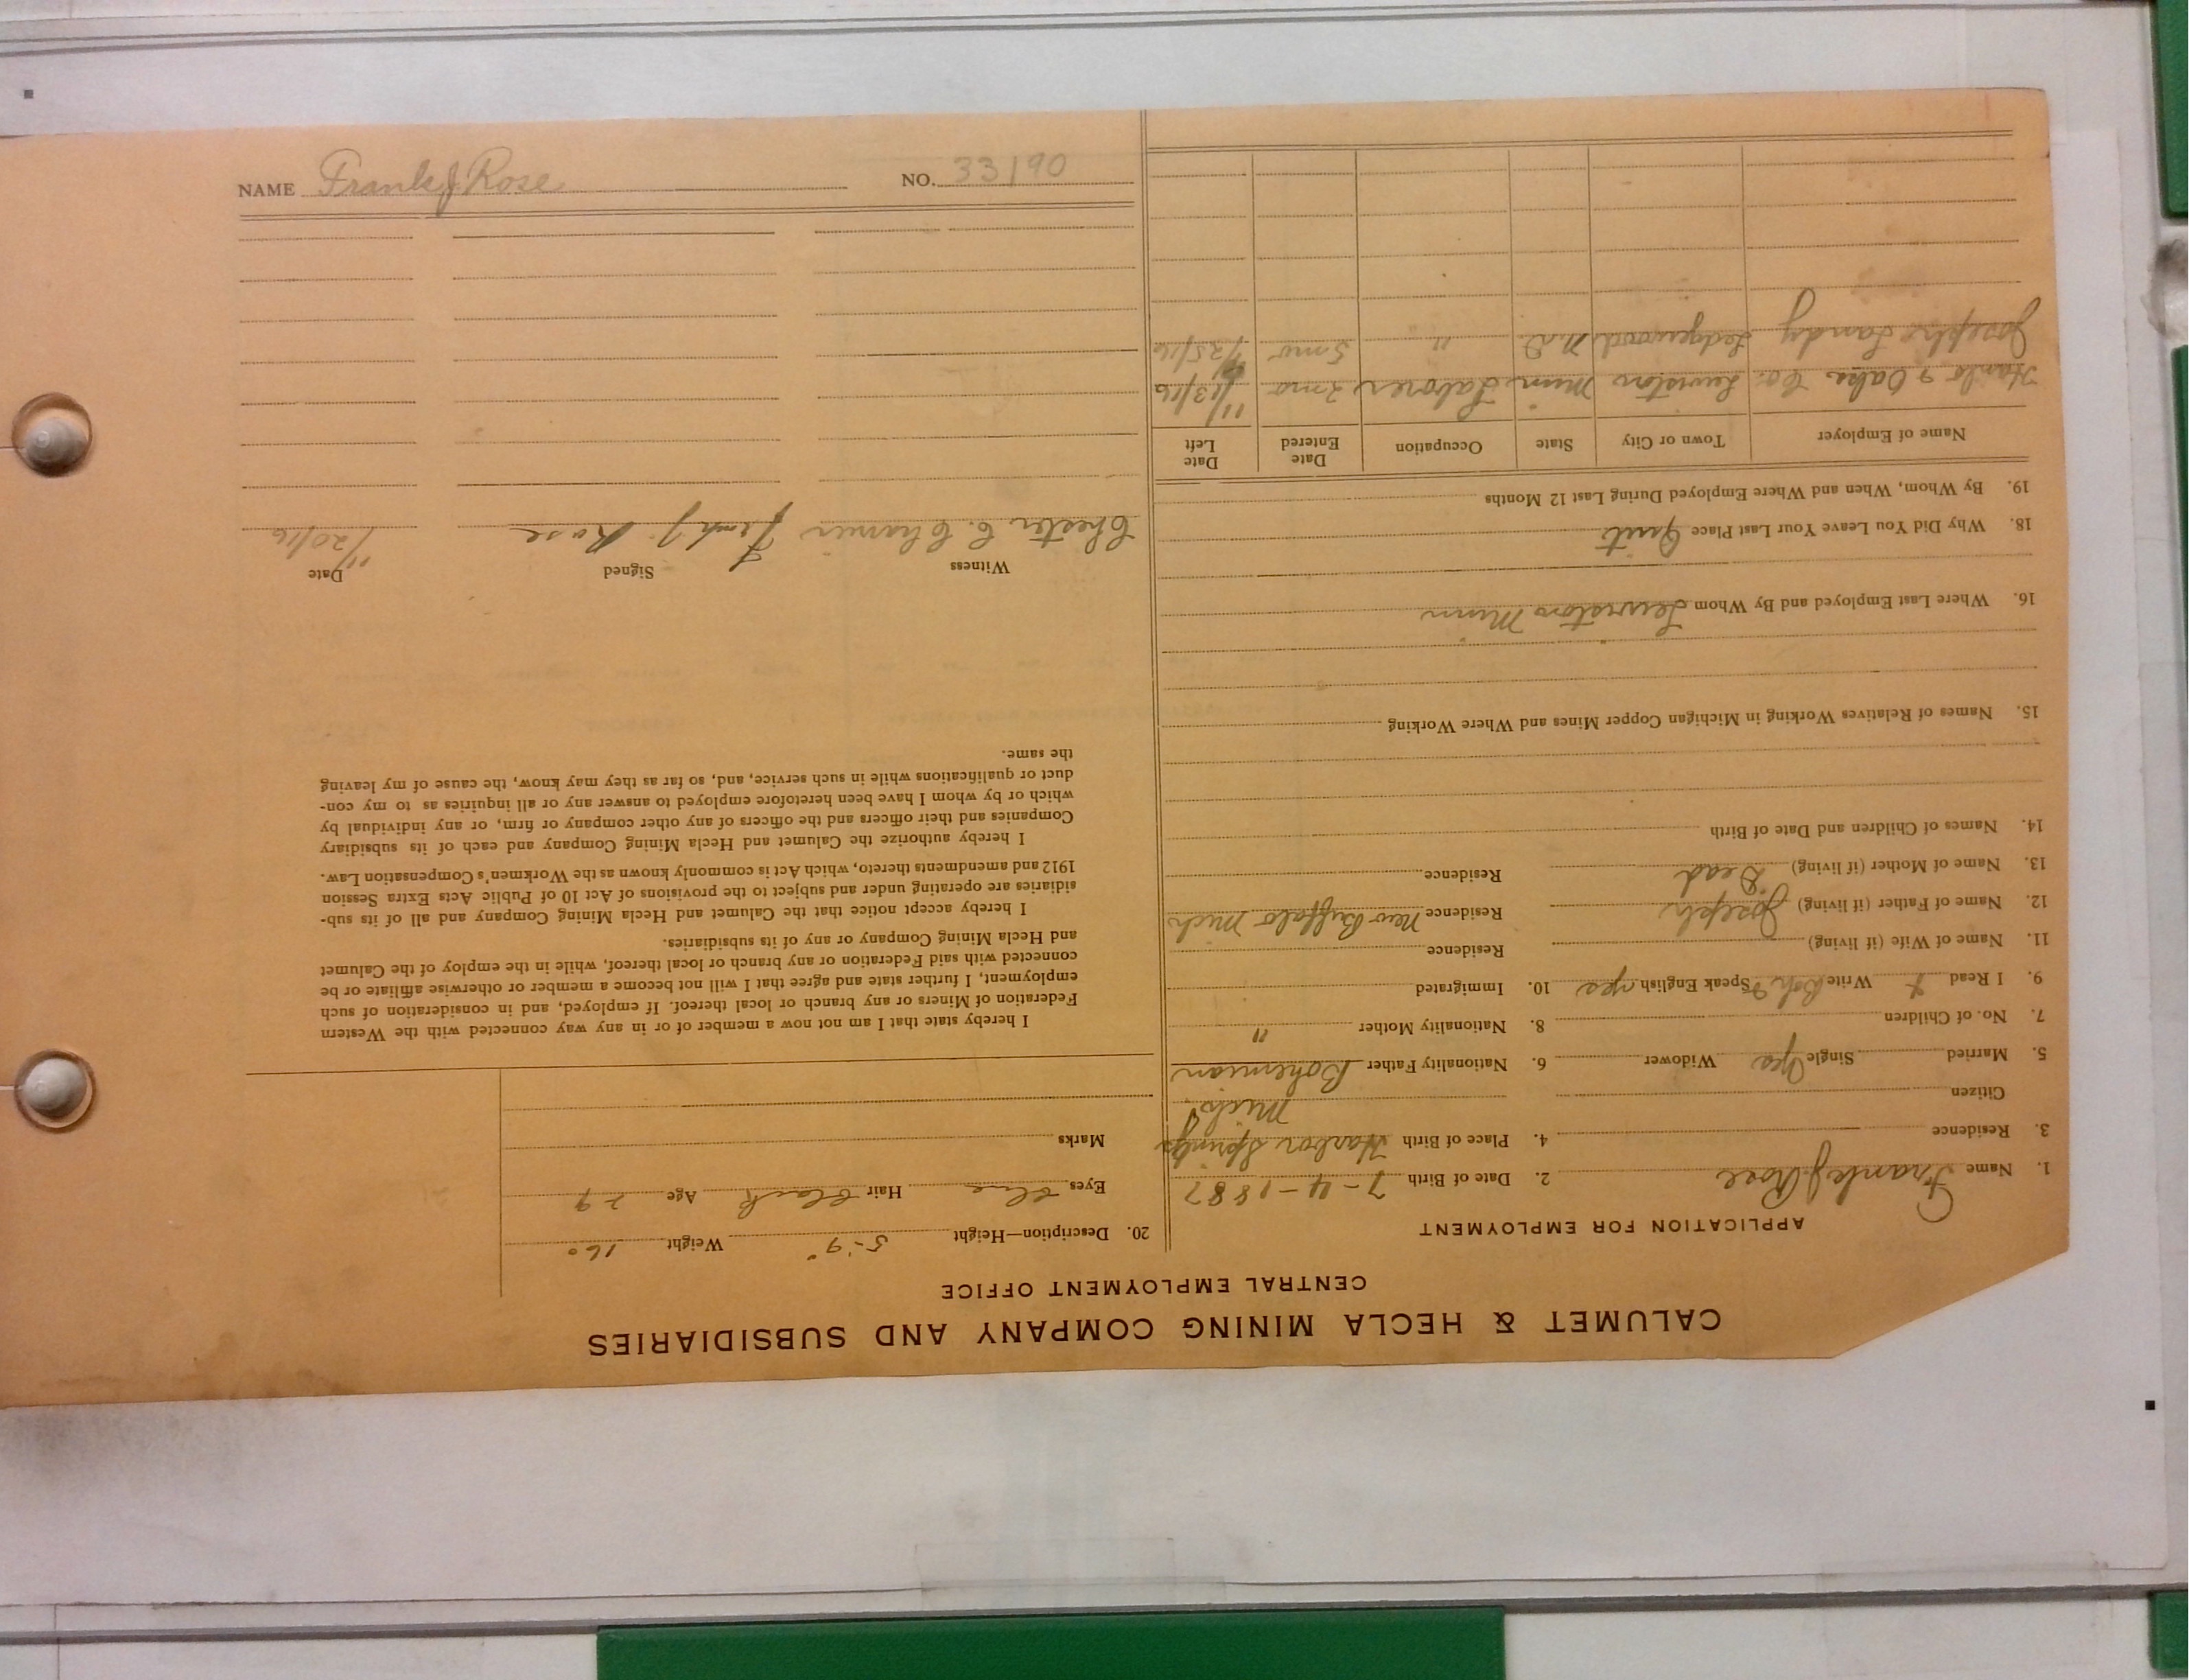 CALUMET & HECLA MINING COMPANY AND SUBSIDIARIES
CENTRAL EMPLOYMENT OFFICE
APPLICATION FOR EMPLOYMENT
1. Name Frank J. Rose 2. Date of Birth 7-4-1887
3. Residence 4. Place of Birth Harbor Springs
Citizen Mich.
5. Married Single Yes Widower 6. Nationality Father Bohemian
7. No. of Children 8. Nationality Mother "
9. I Read Write Speak English yes 10. Immigrated
11. Name of Wife (if living) Residence
12. Name of Father (if living) Joseph Residence New Buffalo Mich
13. Name of Mother (if living) Dead Residence
14. Names of Children and Date of Birth
15. Names of Relatives Working in Michigan Copper Mines and Where Working
16. Where Last Employed and By Whom Lewiston Minn
18. Why Did You Leave Your Last Place Quit
19. By Whom, When and Where Employed During Last 12 Months
Name of Employer Town or City State Occupation Date Entered Date Left
& Oakes Co. Lewiston Minn Laborer 2 mo 11/13/16
Joseph Landy Ledgewood N.D. " 5 mo /25/16
20. Description—Height 5-9" Weight 160
Eyes blue Hair black Age 29
Marks
I hereby state that I am not now a member of or in any way connected with the Western
Federation of Miners or any branch or local thereof. If employed, and in consideration of such
employment, I further state and agree that I will not become a member or otherwise affiliate or be
connected with said Federation or any branch or local thereof, while in the employ of the Calumet
and Hecla Mining Company or any of its subsidiaries.
I hereby accept notice that the Calumet and Hecla Mining Company and all of its sub-
sidiaries are operating under and subject to the provisions of Act 10 of Public Acts Extra Session
1912 and amendments thereto, which Act is commonly known as the Workmen's Compensation Law.
I hereby authorize the Calumet and Hecla Mining Company and each of its subsidiary
Companies and their officers and the officers of any other company or firm, or any individual by
which or by whom I have been heretofore employed to answer any or all inquiries as to my con-
duct or qualifications while in such service, and, so far as they may know, the cause of my leaving
the same.
Witness Signed Date
Chester C. Frank J. Rose 11/20/16
NAME Frank J Rose NO. 33190